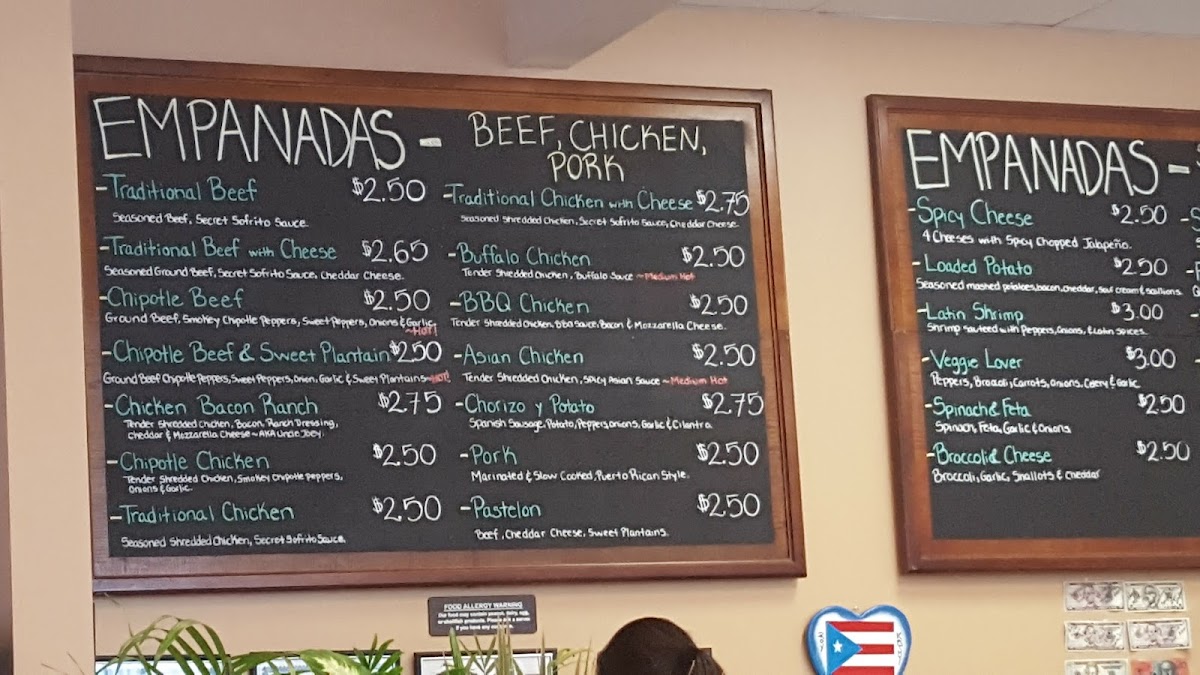 EMPANADAS -
BEEF, CHICKEN,
PORK
-Traditional Beef $2.50
Seasoned Beef, Secret Sofrito Sauce.
-Traditional Beef with Cheese $2.65
Seasoned Ground Beef, Secret Sofrito Sauce, Cheddar Cheese.
-Chipotle Beef $2.50
Ground Beef, Smokey Chipotle Peppers, Sweet Peppers, Onions & Garlic.
~HOT!
-Chipotle Beef & Sweet Plantain $2.50
Ground Beef Chipotle Peppers, Sweet Peppers, Onion, Garlic & Sweet Plantains ~HOT!
-Chicken Bacon Ranch $2.75
Tender Shredded Chicken, Bacon, Ranch Dressing,
Cheddar & Mozzarella Cheese ~ AKA Uncle Joey.
-Chipotle Chicken $2.50
Tender Shredded Chicken, Smokey Chipotle Peppers,
Onions & Garlic.
-Traditional Chicken $2.50
Seasoned Shredded Chicken, Secret Sofrito Sauce.
-Traditional Chicken with Cheese $2.75
Seasoned Shredded Chicken, Secret Sofrito Sauce, Cheddar Cheese.
-Buffalo Chicken $2.50
Tender Shredded Chicken, Buffalo Sauce ~Medium Hot
-BBQ Chicken $2.50
Tender Shredded Chicken, BBQ Sauce, Bacon & Mozzarella Cheese.
-Asian Chicken $2.50
Tender Shredded Chicken, Spicy Asian Sauce ~Medium Hot
-Chorizo y Potato $2.75
Spanish Sausage, Potato, Peppers, Onions, Garlic & Cilantro.
-Pork $2.50
Marinated & Slow Cooked, Puerto Rican Style.
-Pastelon $2.50
Beef, Cheddar Cheese, Sweet Plantains.
EMPANADAS -
-Spicy Cheese $2.50
4 Cheeses with Spicy Chopped Jalapeño.
-Loaded Potato $2.50
Seasoned mashed potatoes, bacon, cheddar, sour cream & scallions.
-Latin Shrimp $3.00
Shrimp sauteed with Peppers, Onions, & Latin Spices.
-Veggie Lover $3.00
Peppers, Broccoli, Carrots, Onions, Celery & Garlic
-Spinach & Feta $2.50
Spinach, Feta, Garlic & Onions
-Broccoli & Cheese $2.50
Broccoli, Garlic, Shallots & Cheddar
FOOD ALLERGY WARNING
Our food may contain peanut, dairy, egg,
or shellfish products. Please ask a server
if you have any concerns.